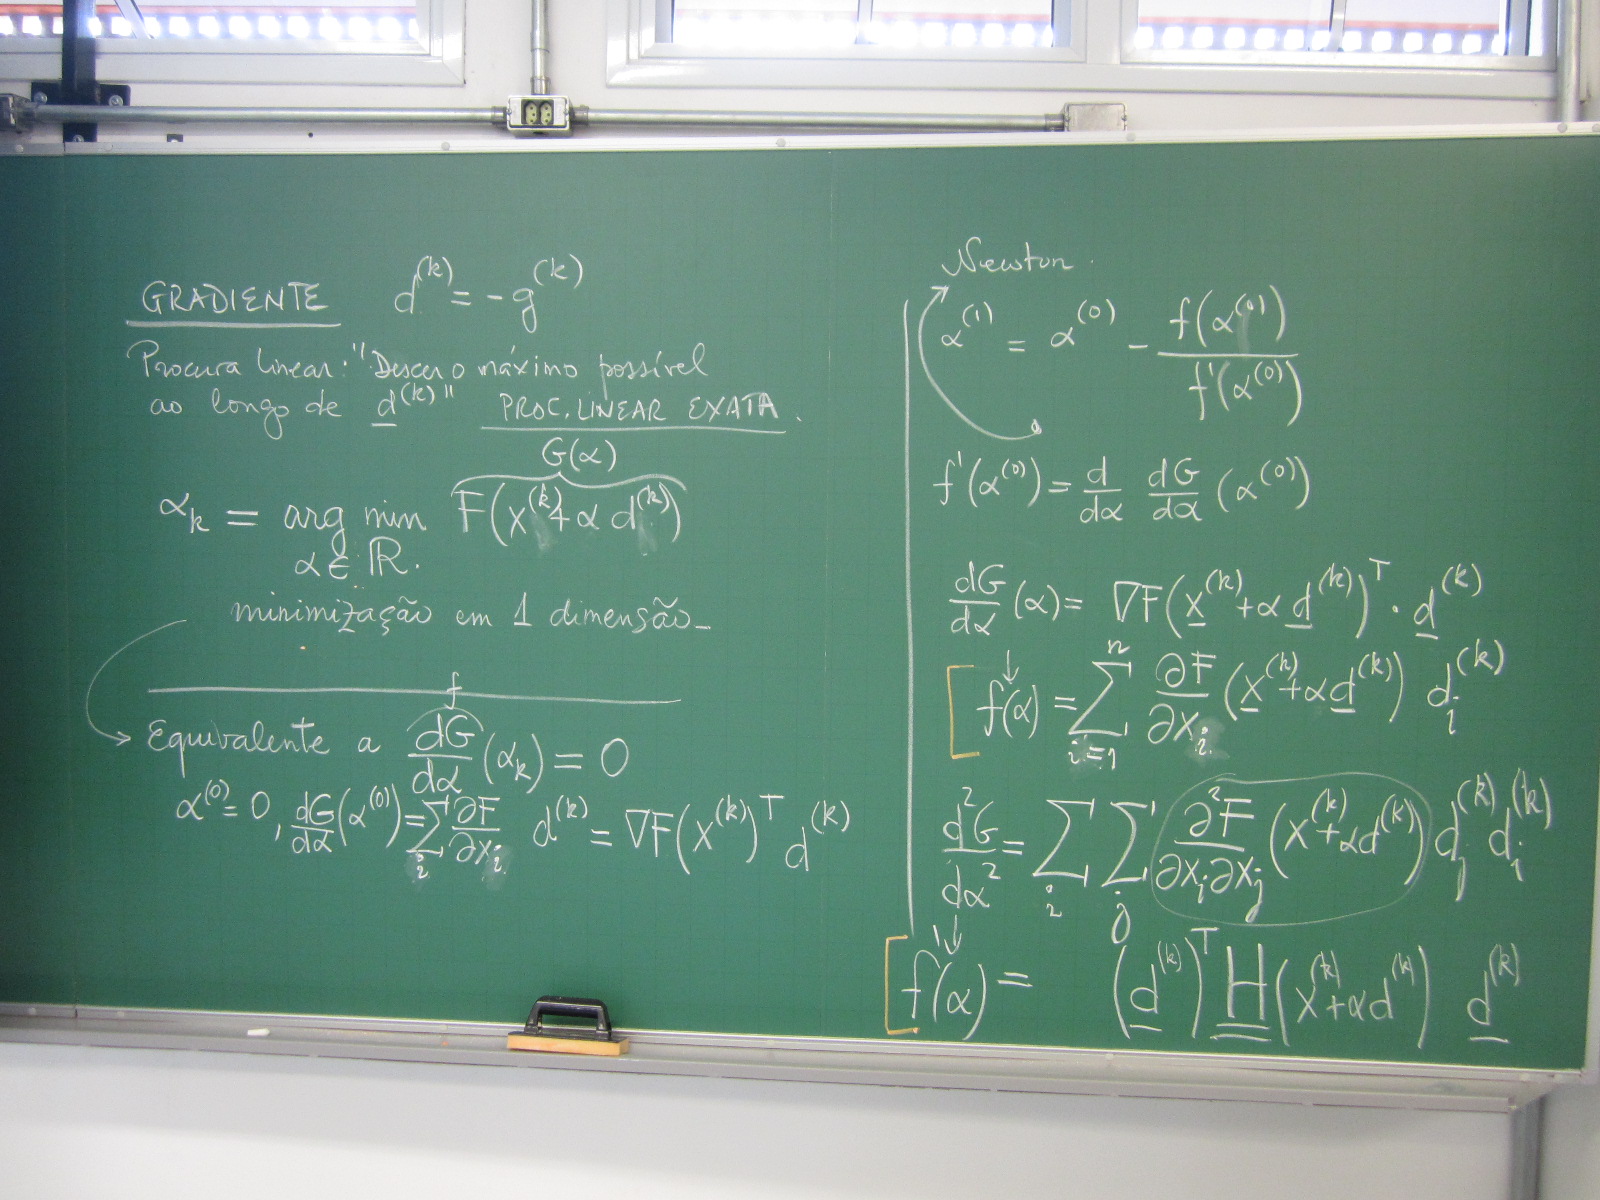 GRADIENTE d^(k) = -g^(k)
Procura linear: "Descer o máximo possível
ao longo de d^(k)" PROC. LINEAR EXATA.
G(α)
α_k = arg min F(x^(k) + α d^(k))
α ∈ ℝ.
minimização em 1 dimensão_
f
Equivalente a dG/dα (α_k) = 0
α^(0) = 0, dG/dα (α^(0)) = Σ_i ∂F/∂x_i d^(k) = ∇F(x^(k))^T d^(k)
Newton.
α^(1) = α^(0) - f(α^(0)) / f'(α^(0))
f'(α^(0)) = d/dα dG/dα (α^(0))
dG/dα (α) = ∇F(x^(k) + α d^(k))^T · d^(k)
f(α) = Σ_{i=1}^n ∂F/∂x_i (x^(k) + α d^(k)) d_i^(k)
d²G/dα² = Σ_i Σ_j ∂²F/∂x_i∂x_j (x^(k) + α d^(k)) d_j^(k) d_i^(k)
f'(α) = (d^(k))^T H(x^(k) + α d^(k)) d^(k)